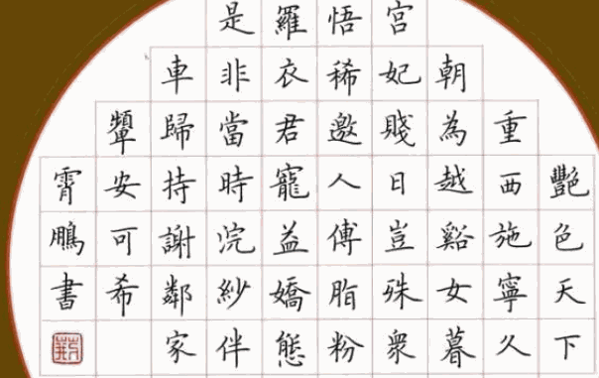 豔色天下
重西施寧久
朝為越谿女暮
宮妃賤日豈殊衆
悟稀邀人傅脂粉
羅衣君寵益嬌態
是非當時浣紗伴
車歸持謝鄰家
顰安可希
霄鵬書